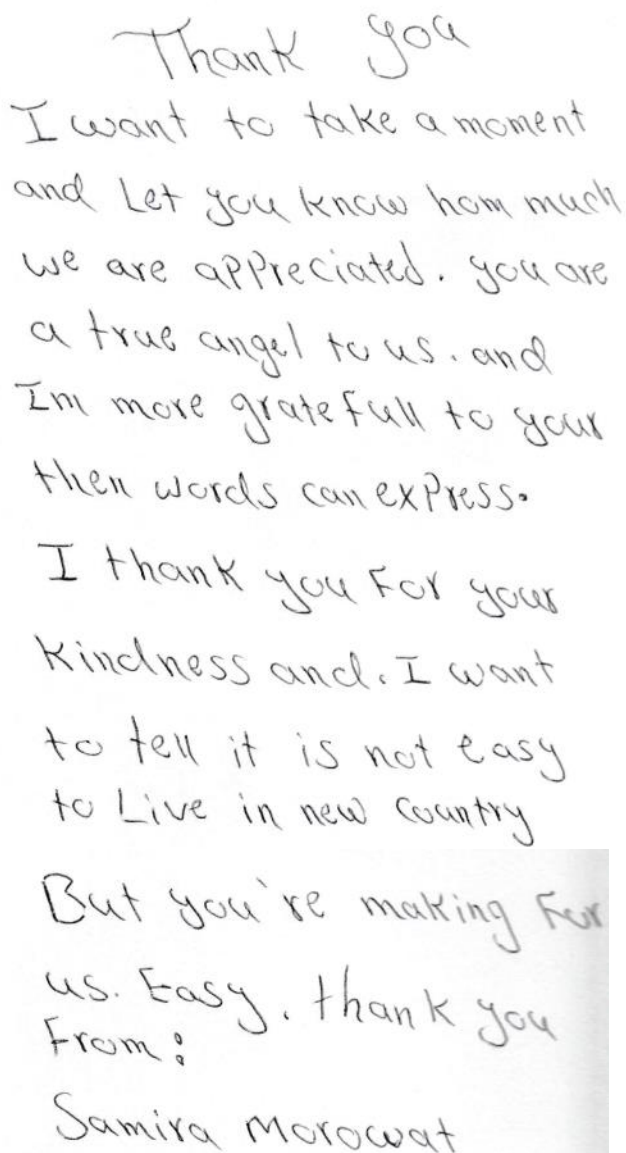 Thank you
I want to take a moment
and Let you know hom much
we are appreciated. you are
a true angel to us. and
Im more gratefull to your
then words can express.
I thank you For your
kindness and. I want
to tell it is not easy
to Live in new country
But you're making For
us. Easy. thank you
From:
Samira Morowat